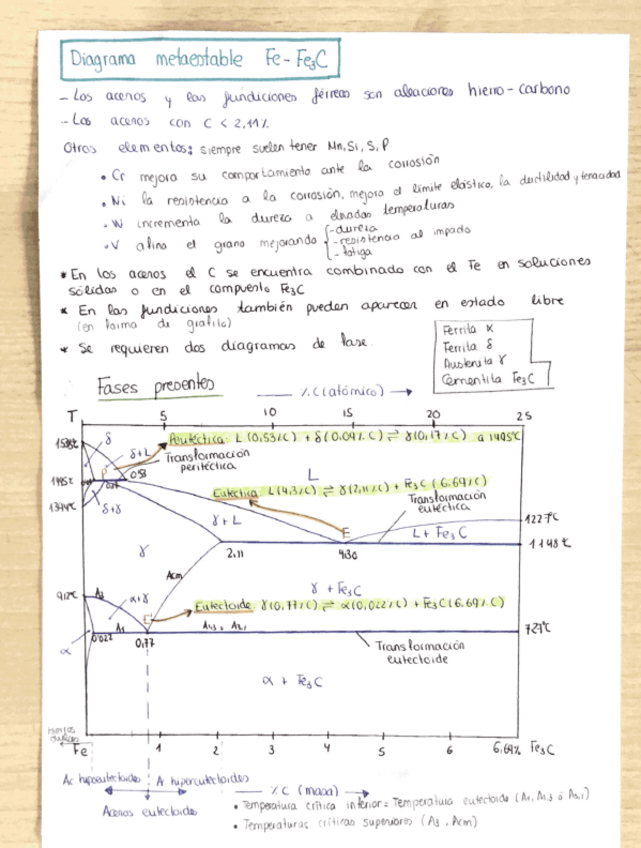 Diagrama metaestable Fe-Fe₃C
- Los aceros y las fundiciones férreas son aleaciones hierro-carbono
- Los aceros con C < 2,11%
Otros elementos: siempre suelen tener Mn, Si, S, P
• Cr mejora su comportamiento ante la corrosión
• Ni la resistencia a la corrosión, mejora el límite elástico, la ductilidad y tenacidad
• W incrementa la dureza a elevadas temperaturas
• V afina el grano mejorando { -dureza
-resistencia al impacto
-fatiga
* En los aceros el C se encuentra combinado con el Fe en soluciones
sólidas o en el compuesto Fe₃C
* En las fundiciones también pueden aparecer en estado libre
(en forma de grafito)
* Se requieren dos diagramas de fase.
Ferrita α
Ferrita δ
Austenita γ
Cementita Fe₃C
Fases presentes
% C (atómico) →
T 5 10 15 20 25
1538ºC
δ
δ+L
Peritéctica: L (0,53%C) + δ (0,09%C) ⇌ γ (0,17%C) a 1495ºC
Transformación
peritéctica
1495ºC
0,53
L
1394ºC
δ+γ
Eutéctica: L (4,3%C) ⇌ γ (2,11%C) + Fe₃C (6,69%C)
Transformación
eutéctica
γ+L
E
L + Fe₃C
1227ºC
1148ºC
γ
2,11
4,30
Acm
912ºC
A₃
α+γ
γ + Fe₃C
Eutectoide: γ (0,77%C) ⇌ α (0,022%C) + Fe₃C (6,69%C)
A₁
A₁,₃ = A₃,₁
727ºC
0,022
0,77
α
Transformación
eutectoide
α + Fe₃C
Hierros
dulces
Fe 1 2 3 4 5 6 6,69% Fe₃C
Ac hipoeutectoides
A. hipereutectoides
Aceros eutectoides
% C (masa) →
• Temperatura crítica inferior = Temperatura eutectoide (A₁, A₁,₃ ó A₃,₁)
• Temperaturas críticas superiores (A₃, Acm)